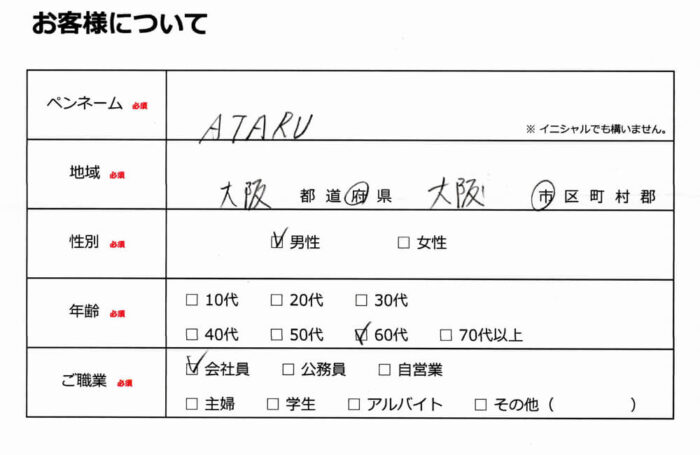 お客様について
ペンネーム 必須
ATARU
※ イニシャルでも構いません。
地域 必須
大阪 都 道 府 県 大阪 市 区 町 村 郡
性別 必須
☑ 男性 □ 女性
年齢 必須
□ 10代 □ 20代 □ 30代
□ 40代 □ 50代 ☑ 60代 □ 70代以上
ご職業 必須
☑ 会社員 □ 公務員 □ 自営業
□ 主婦 □ 学生 □ アルバイト □ その他（ ）